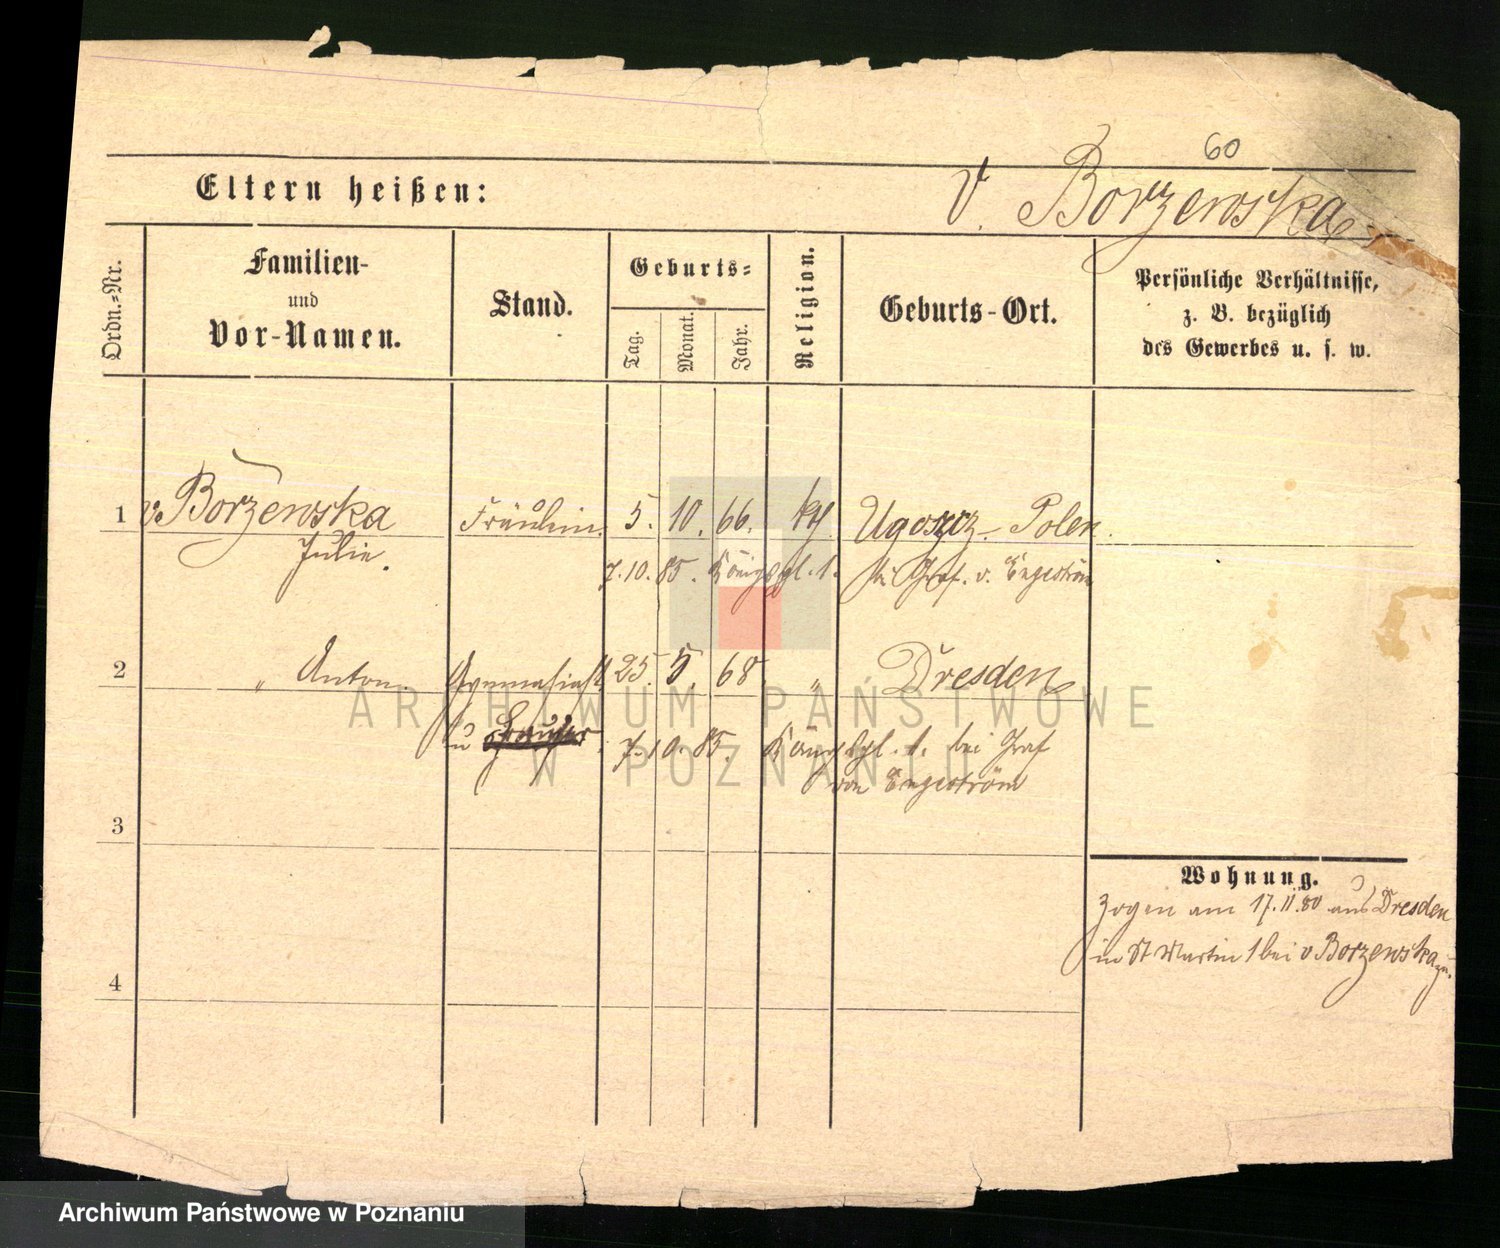 60
Eltern heißen:
v. Borzewska
Ordn.-Nr.
Familien-
und
Vor-Namen.
Stand.
Geburts-
Tag.
Monat.
Jahr.
Religion.
Geburts-Ort.
Persönliche Verhältnisse,
z. B. bezüglich
des Gewerbes u. s. w.
1 v. Borzewska Fräulein 5. 10. 66. kth. Ugoszcz Polen.
Julie. 7. 10. 85. Königspl. 1. bei Graf. v. Engeström
2 " Anton. Gymnasiast 25. 5. 68. " Dresden
7. 10. 85. Königspl. 1. bei Graf
von Engeström
3
4
Wohnung.
Zogen am 17.11.80 aus Dresden
in St Martin 1 bei v Borzewska zu.
ARCHIWUM PAŃSTWOWE
W POZNANIU
Archiwum Państwowe w Poznaniu